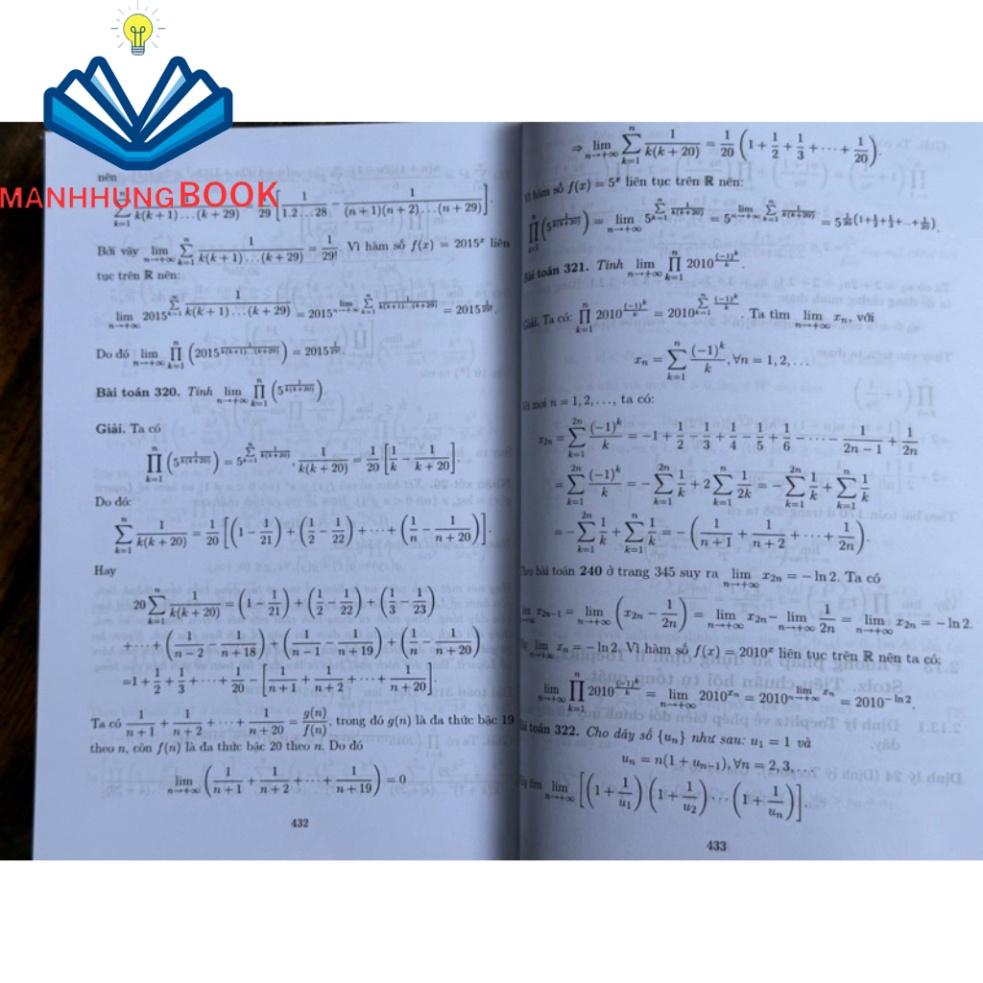 MANHHUNGBOOK
nên
\sum_{k=1}^{n} \frac{1}{k(k+1)...(k+29)} \frac{1}{29} [\frac{1}{1.2...28} - \frac{1}{(n+1)(n+2)...(n+29)}].
Bởi vậy \lim_{n→+∞} \sum_{k=1}^{n} \frac{1}{k(k+1)...(k+29)} = \frac{1}{29!}. Vì hàm số f(x) = 2015^x liên
tục trên ℝ nên:
\lim_{n→+∞} 2015^{\sum_{k=1}^{n}} \frac{1}{k(k+1)...(k+29)} = 2015^{\lim_{n→+∞} \sum_{k=1}^{n} \frac{1}{k(k+1)...(k+29)}} = 2015^{\frac{1}{29!}}.
Do đó \lim_{n→+∞} \prod_{k=1}^{n} (2015^{\frac{1}{k(k+1)...(k+29)}}) = 2015^{\frac{1}{29!}}.
Bài toán 320. Tính \lim_{n→+∞} \prod_{k=1}^{n} (5^{\frac{1}{k(k+20)}}).
Giải. Ta có
\prod_{k=1}^{n} (5^{\frac{1}{k(k+20)}}) = 5^{\sum_{k=1}^{n} \frac{1}{k(k+20)}}, \frac{1}{k(k+20)} = \frac{1}{20} [\frac{1}{k} - \frac{1}{k+20}].
Do đó:
\sum_{k=1}^{n} \frac{1}{k(k+20)} = \frac{1}{20} [(1 - \frac{1}{21}) + (\frac{1}{2} - \frac{1}{22}) + ··· + (\frac{1}{n} - \frac{1}{n+20})].
Hay
20 \sum_{k=1}^{n} \frac{1}{k(k+20)} = (1 - \frac{1}{21}) + (\frac{1}{2} - \frac{1}{22}) + (\frac{1}{3} - \frac{1}{23})
+ ··· + (\frac{1}{n-2} - \frac{1}{n+18}) + (\frac{1}{n-1} - \frac{1}{n+19}) + (\frac{1}{n} - \frac{1}{n+20})
=1 + \frac{1}{2} + \frac{1}{3} + ··· + \frac{1}{20} - [\frac{1}{n+1} + \frac{1}{n+2} + ··· + \frac{1}{n+20}].
Ta có \frac{1}{n+1} + \frac{1}{n+2} + ··· + \frac{1}{n+20} = \frac{g(n)}{f(n)}, trong đó g(n) là đa thức bậc 19
theo n, còn f(n) là đa thức bậc 20 theo n. Do đó
\lim_{n→+∞} (\frac{1}{n+1} + \frac{1}{n+2} + ··· + \frac{1}{n+19}) = 0
432
⇒ \lim_{n→+∞} \sum_{k=1}^{n} \frac{1}{k(k+20)} = \frac{1}{20} (1 + \frac{1}{2} + \frac{1}{3} + ··· + \frac{1}{20}).
hàm số f(x) = 5^x liên tục trên ℝ nên:
\prod_{k=1}^{n} (5^{\frac{1}{k(k+20)}}) = \lim_{n→+∞} 5^{\sum_{k=1}^{n} \frac{1}{k(k+20)}} = 5^{\lim_{n→+∞} \sum_{k=1}^{n} \frac{1}{k(k+20)}} = 5^{\frac{1}{20}(1+\frac{1}{2}+\frac{1}{3}+···+\frac{1}{20})}.
Bài toán 321. Tính \lim_{n→+∞} \prod_{k=1}^{n} 2010^{\frac{(-1)^k}{k}}.
Giải. Ta có: \prod_{k=1}^{n} 2010^{\frac{(-1)^k}{k}} = 2010^{\sum_{k=1}^{n} \frac{(-1)^k}{k}}. Ta tìm \lim_{n→+∞} x_n, với
x_n = \sum_{k=1}^{n} \frac{(-1)^k}{k}, ∀n = 1, 2, ...
Với mọi n = 1, 2, ..., ta có:
x_{2n} = \sum_{k=1}^{2n} \frac{(-1)^k}{k} = -1 + \frac{1}{2} - \frac{1}{3} + \frac{1}{4} - \frac{1}{5} + \frac{1}{6} - ··· - \frac{1}{2n-1} + \frac{1}{2n}
= \sum_{k=1}^{2n} \frac{(-1)^k}{k} = - \sum_{k=1}^{2n} \frac{1}{k} + 2 \sum_{k=1}^{n} \frac{1}{2k} = - \sum_{k=1}^{2n} \frac{1}{k} + \sum_{k=1}^{n} \frac{1}{k}
= - \sum_{k=1}^{2n} \frac{1}{k} + \sum_{k=1}^{n} \frac{1}{k} = - (\frac{1}{n+1} + \frac{1}{n+2} + ··· + \frac{1}{2n}).
Theo bài toán 240 ở trang 345 suy ra \lim_{n→+∞} x_{2n} = - ln 2. Ta có
x_{2n-1} = \lim_{n→+∞} (x_{2n} - \frac{1}{2n}) = \lim_{n→+∞} x_{2n} - \lim_{n→+∞} \frac{1}{2n} = \lim_{n→+∞} x_{2n} = - ln 2.
\lim_{n→+∞} x_n = - ln 2. Vì hàm số f(x) = 2010^x liên tục trên ℝ nên ta có:
\lim_{n→+∞} \prod_{k=1}^{n} 2010^{\frac{(-1)^k}{k}} = \lim_{n→+∞} 2010^{x_n} = 2010^{\lim_{n→+∞} x_n} = 2010^{-ln 2}.
Bài toán 322. Cho dãy số {u_n} như sau: u_1 = 1 và
u_n = n(1 + u_{n-1}), ∀n = 2, 3, ...
tìm \lim_{n→+∞} [(1 + \frac{1}{u_1}) (1 + \frac{1}{u_2}) ··· (1 + \frac{1}{u_n})].
433